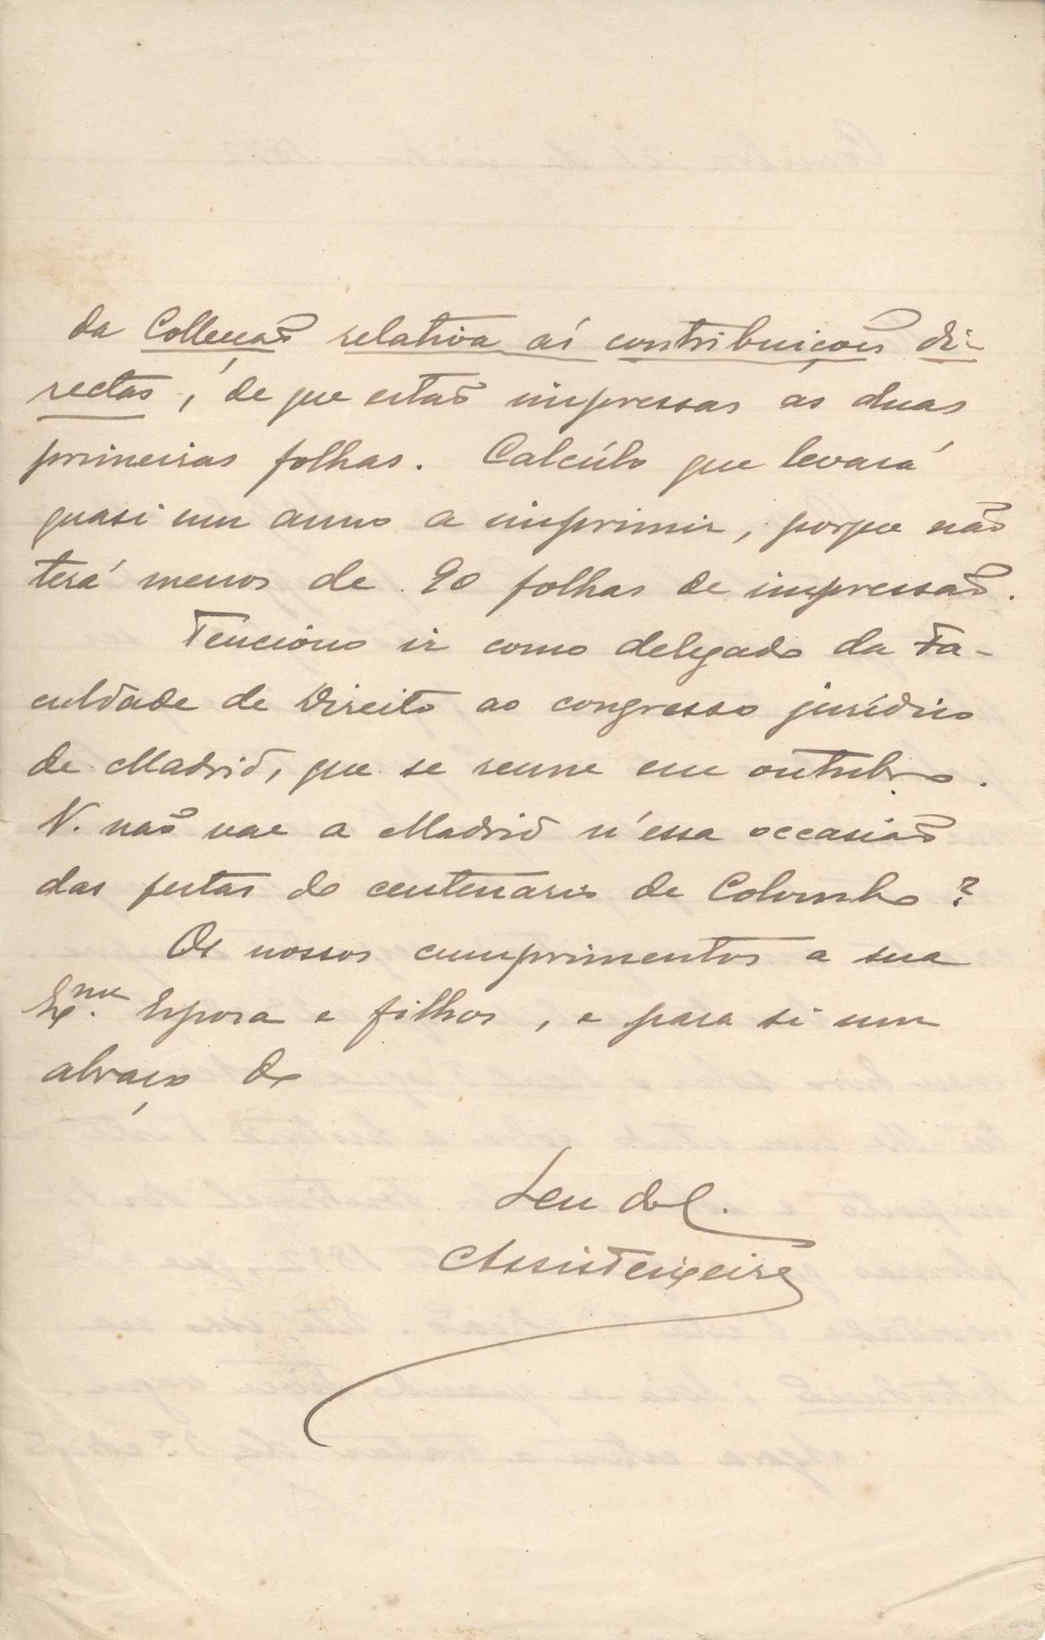 da Collecção relativa ás contribuições di-
rectas, de que estão impressas as duas
primeiras folhas. Calculo que levará
quasi um anno a imprimir, porque não
terá menos de 90 folhas de impressão.
Tenciono ir como delegado da Fa-
culdade de Direito ao congresso juridico
de Madrid, que se reune em outubro.
V. não vae a Madrid n'essa occasião
das festas do centenario de Colombo?
Os nossos cumprimentos a sua
Ex.ma Esposa e filhos, e para si um
abraço do
Seu
Assis Teixeira